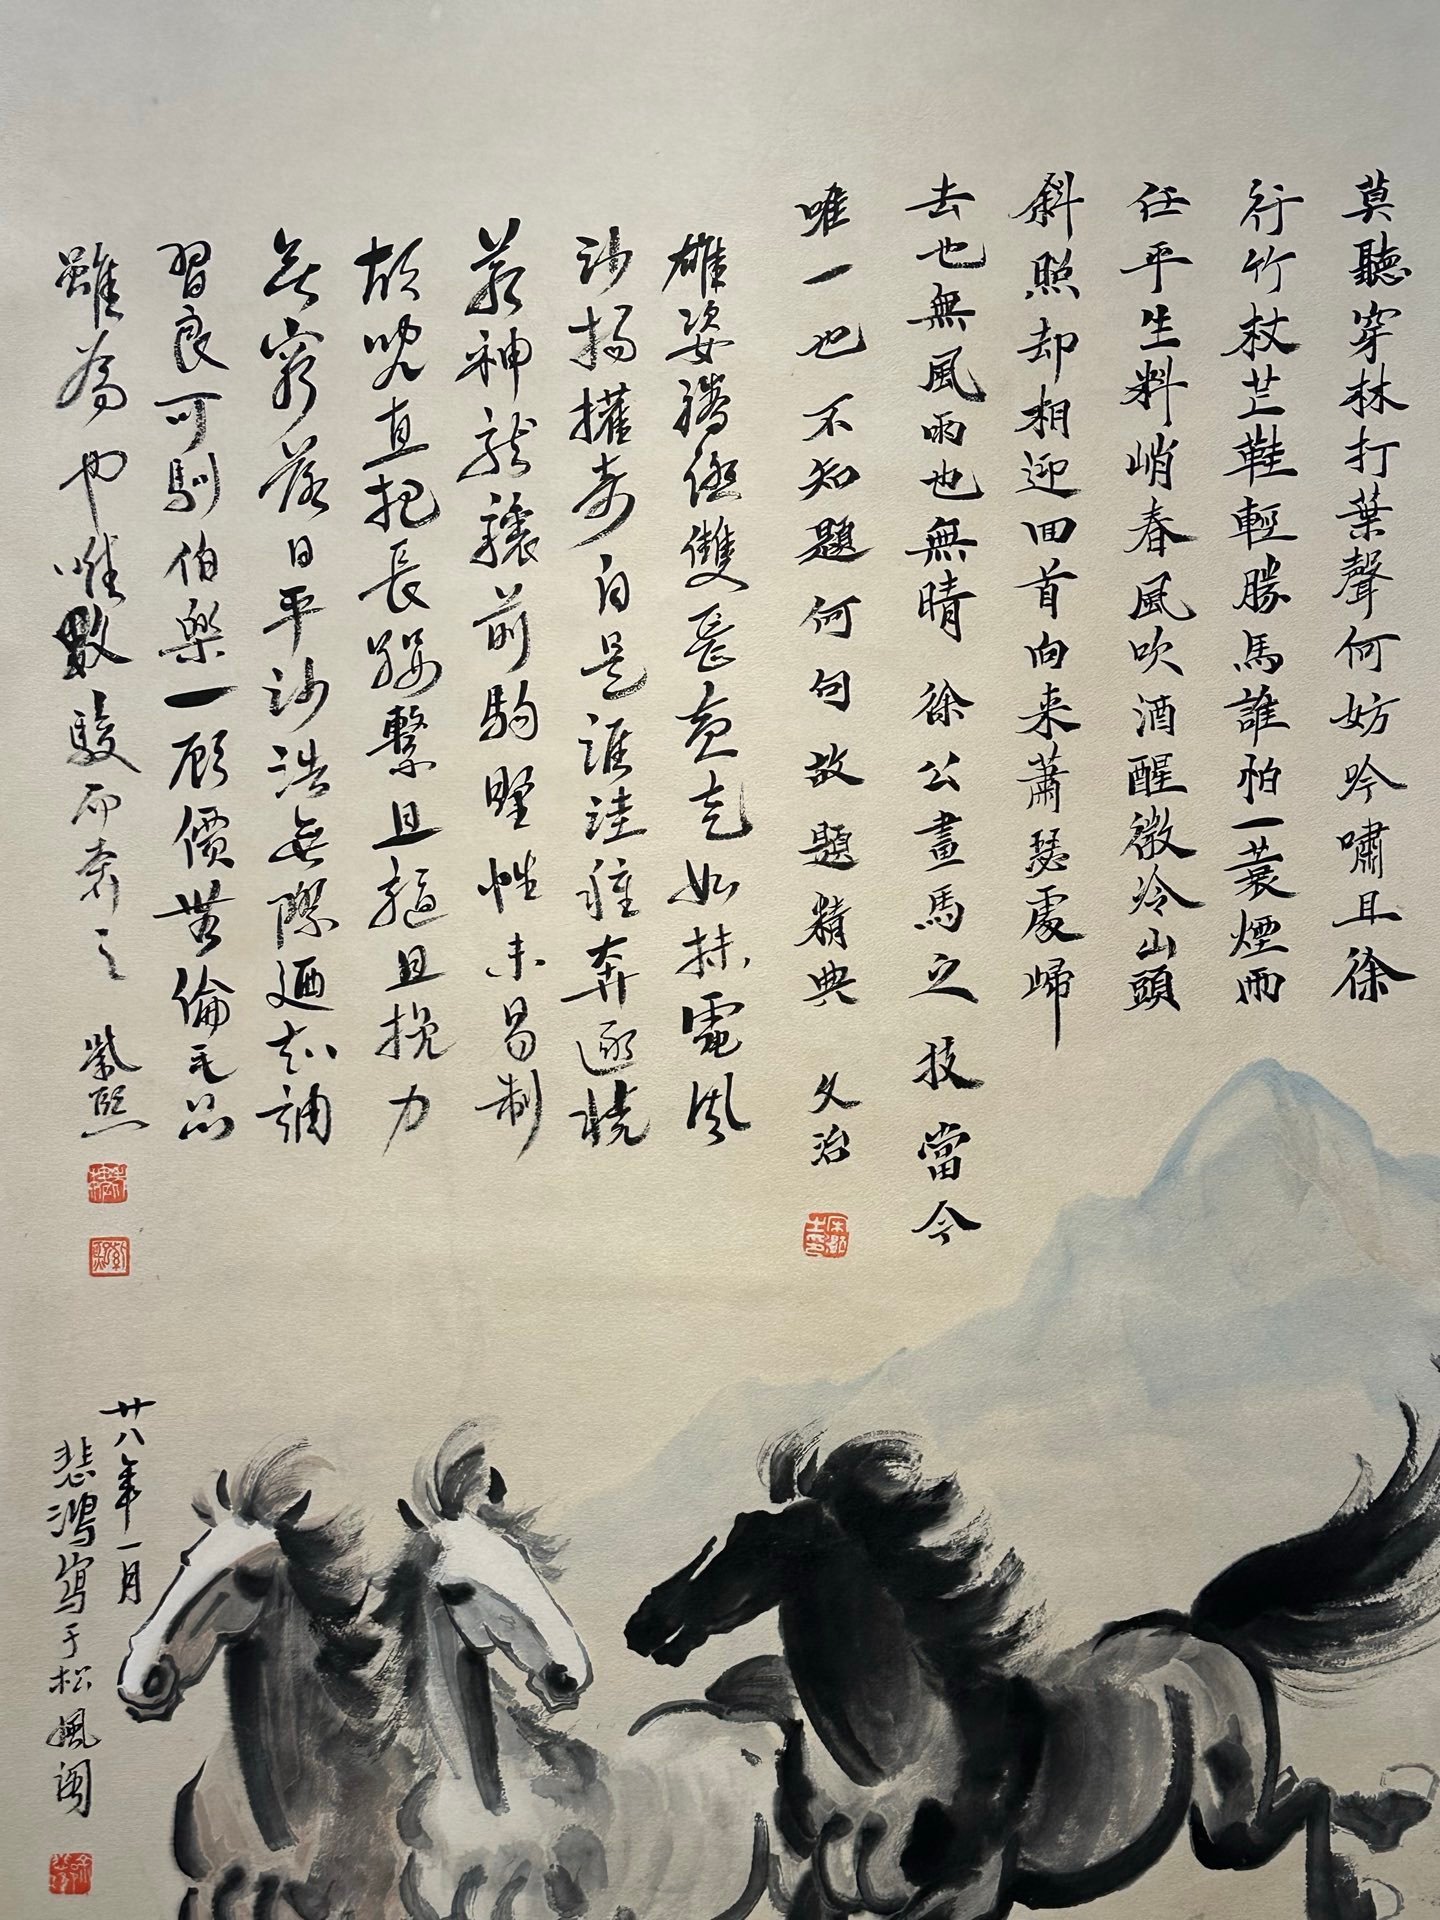 莫聽穿林打葉聲何妨吟嘯且徐
行竹杖芒鞋輕勝馬誰怕一蓑煙雨
任平生料峭春風吹酒醒微冷山頭
斜照却相迎回首向来蕭瑟處歸
去也無風雨也無晴 徐公畫馬之技當今
唯一也不知題何句故題精典 文治
雄姿驕繞雙長走如抹電風
沙揚攉奇自是誰駐奔逐曉
若神龍驤前駒野性未易制
故吮直把長纓繫且驅且挽力
無窮落日平沙浩無際迴知調
習良可馴伯樂一顧價無倫毛品
雖為也唯數駿而者之 紫熙
廿八年一月
悲鴻寫于松風閣